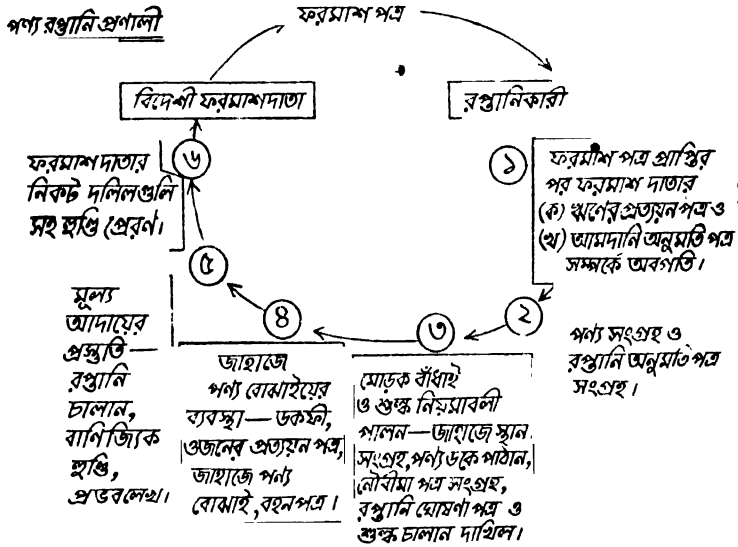 পণ্য রপ্তানি প্রণালী
ফরমাশ পত্র
বিদেশী ফরমাশদাতা
রপ্তানিকারী
১
ফরমাশ পত্র প্রাপ্তির
পর ফরমাশ দাতার
(ক) ঋণের প্রত্যয়ন পত্র ও
(খ) আমদানি অনুমতি পত্র
সম্পর্কে অবগতি।
২
পণ্য সংগ্রহ ও
রপ্তানি অনুমতি পত্র
সংগ্রহ।
৩
মোড়ক বাঁধাই
ও শুল্ক নিয়মাবলী
পালন—জাহাজে স্থান
সংগ্রহ, পণ্য ডকে পাঠান,
নৌবীমা পত্র সংগ্রহ,
রপ্তানি ঘোষণা পত্র ও
শুল্ক চালান দাখিল।
৪
জাহাজে
পণ্য বোঝাইয়ের
ব্যবস্থা—ডকফী,
ওজনের প্রত্যয়ন পত্র,
জাহাজে পণ্য
বোঝাই, বহনপত্র।
৫
মূল্য
আদায়ের
প্রস্তুতি—
রপ্তানি
চালান,
বাণিজ্যিক
হুণ্ডি,
প্রভবলেখ।
৬
ফরমাশ দাতার
নিকট দলিলগুলি
সহ হুণ্ডি প্রেরণ।